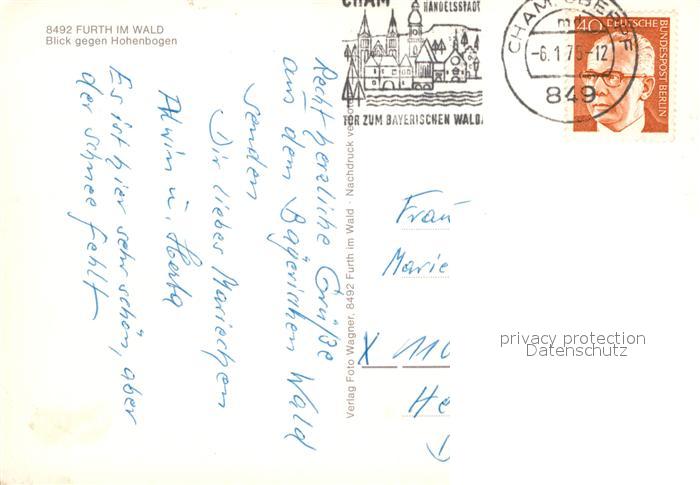 8492 FURTH IM WALD
Blick gegen Hohenbogen
Recht herzliche Grüße
aus dem Bayerischen Wald
senden
Dir liebes Mariechen
Alwin u. Herta
Es ist hier sehr schön, aber
der Schnee fehlt
Verlag Foto Wagner, 8492 Furth im Wald · Nachdruck ve
CHAM
HANDELSSTADT
TOR ZUM BAYERISCHEN WALD
CHAM, OBERPF
m
-6.1.75-12
849
40 DEUTSCHE
BUNDESPOST BERLIN
Frau
Marie
X 110
He
privacy protection
Datenschutz